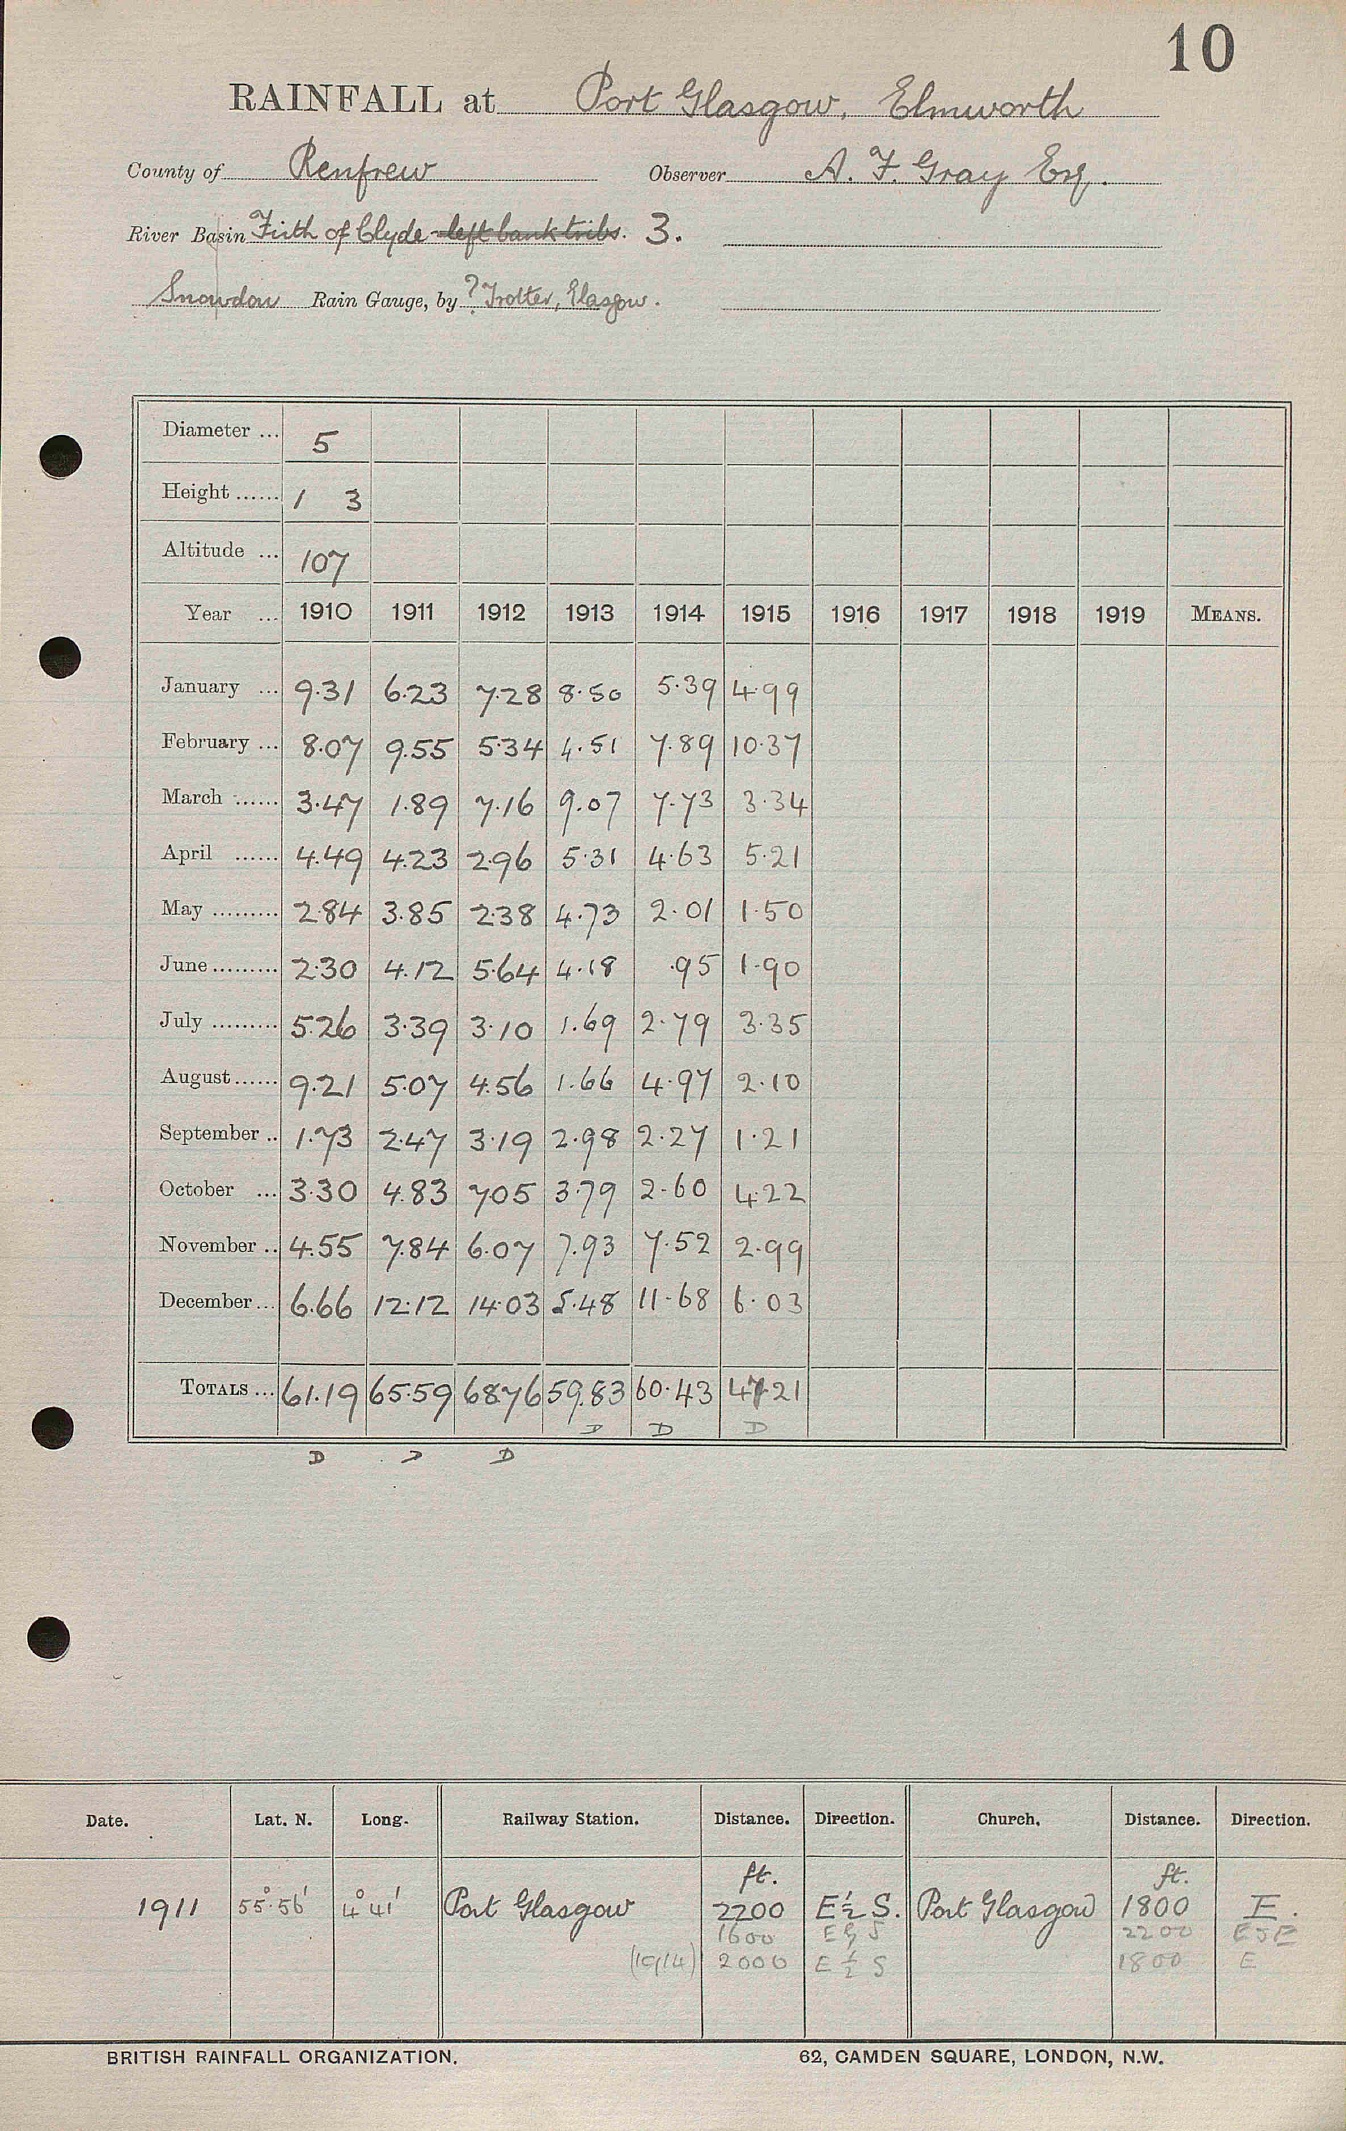 10
RAINFALL at Port Glasgow, Elmworth
County of Renfrew Observer A. F. Gray Esq.
River Basin Firth of Clyde left bank tribs. 3.
Snowdon Rain Gauge, by ? Trotter, Glasgow.
Diameter ... 5
Height ...... 1 3
Altitude ... 107
Year ... 1910 1911 1912 1913 1914 1915 1916 1917 1918 1919 MEANS.
January ... 9.31 6.23 7.28 8.50 5.39 4.99
February ... 8.07 9.55 5.34 4.51 7.89 10.37
March ...... 3.47 1.89 7.16 9.07 7.73 3.34
April ...... 4.49 4.23 2.96 5.31 4.63 5.21
May ......... 2.84 3.85 2.38 4.73 2.01 1.50
June ......... 2.30 4.12 5.64 4.18 .95 1.90
July ......... 5.26 3.39 3.10 1.69 2.79 3.35
August ...... 9.21 5.07 4.56 1.66 4.97 2.10
September .. 1.73 2.47 3.19 2.98 2.27 1.21
October ... 3.30 4.83 7.05 3.79 2.60 4.22
November .. 4.55 7.84 6.07 7.93 7.52 2.99
December ... 6.66 12.12 14.03 5.48 11.68 6.03
TOTALS ... 61.19 65.59 68.76 59.83 60.43 47.21
D D D
D D D
Date. Lat. N. Long. Railway Station. Distance. Direction. Church. Distance. Direction.
ft. ft.
1911 55° 56' 4° 41' Port Glasgow 2200 E½S. Port Glasgow 1800 E.
1600 2200 ESE
(1914) 2000 E ½ S 1800 E
BRITISH RAINFALL ORGANIZATION. 62, CAMDEN SQUARE, LONDON, N.W.